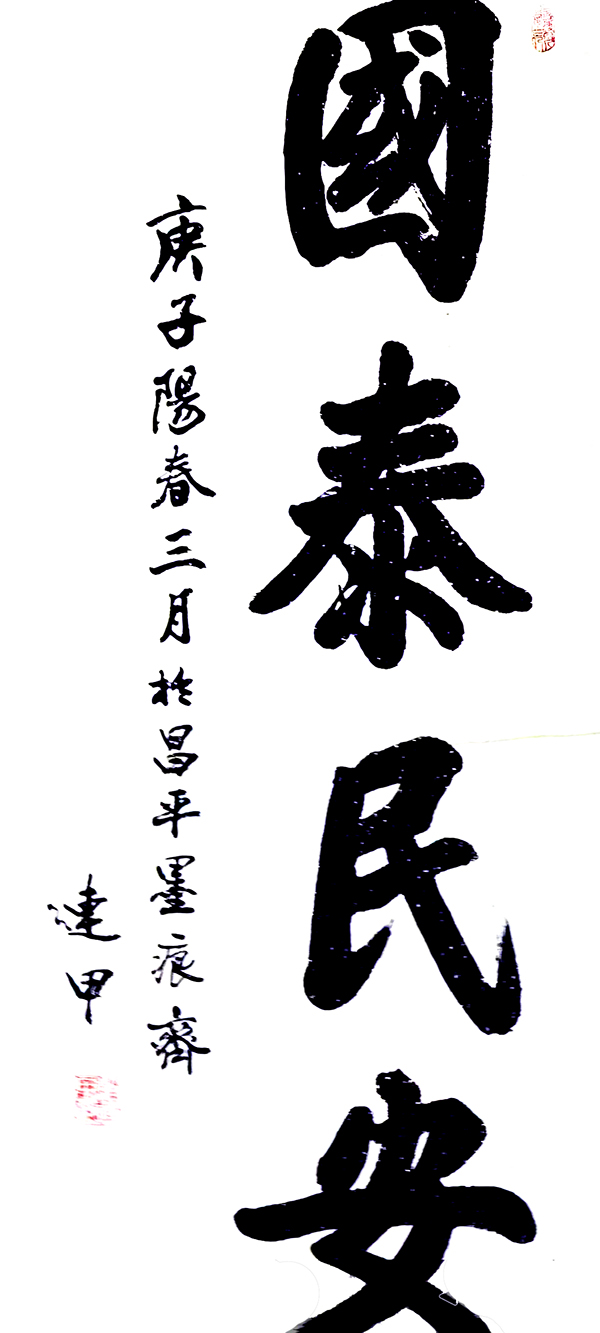 國泰民安
庚子陽春三月於昌平墨痕齋
連甲